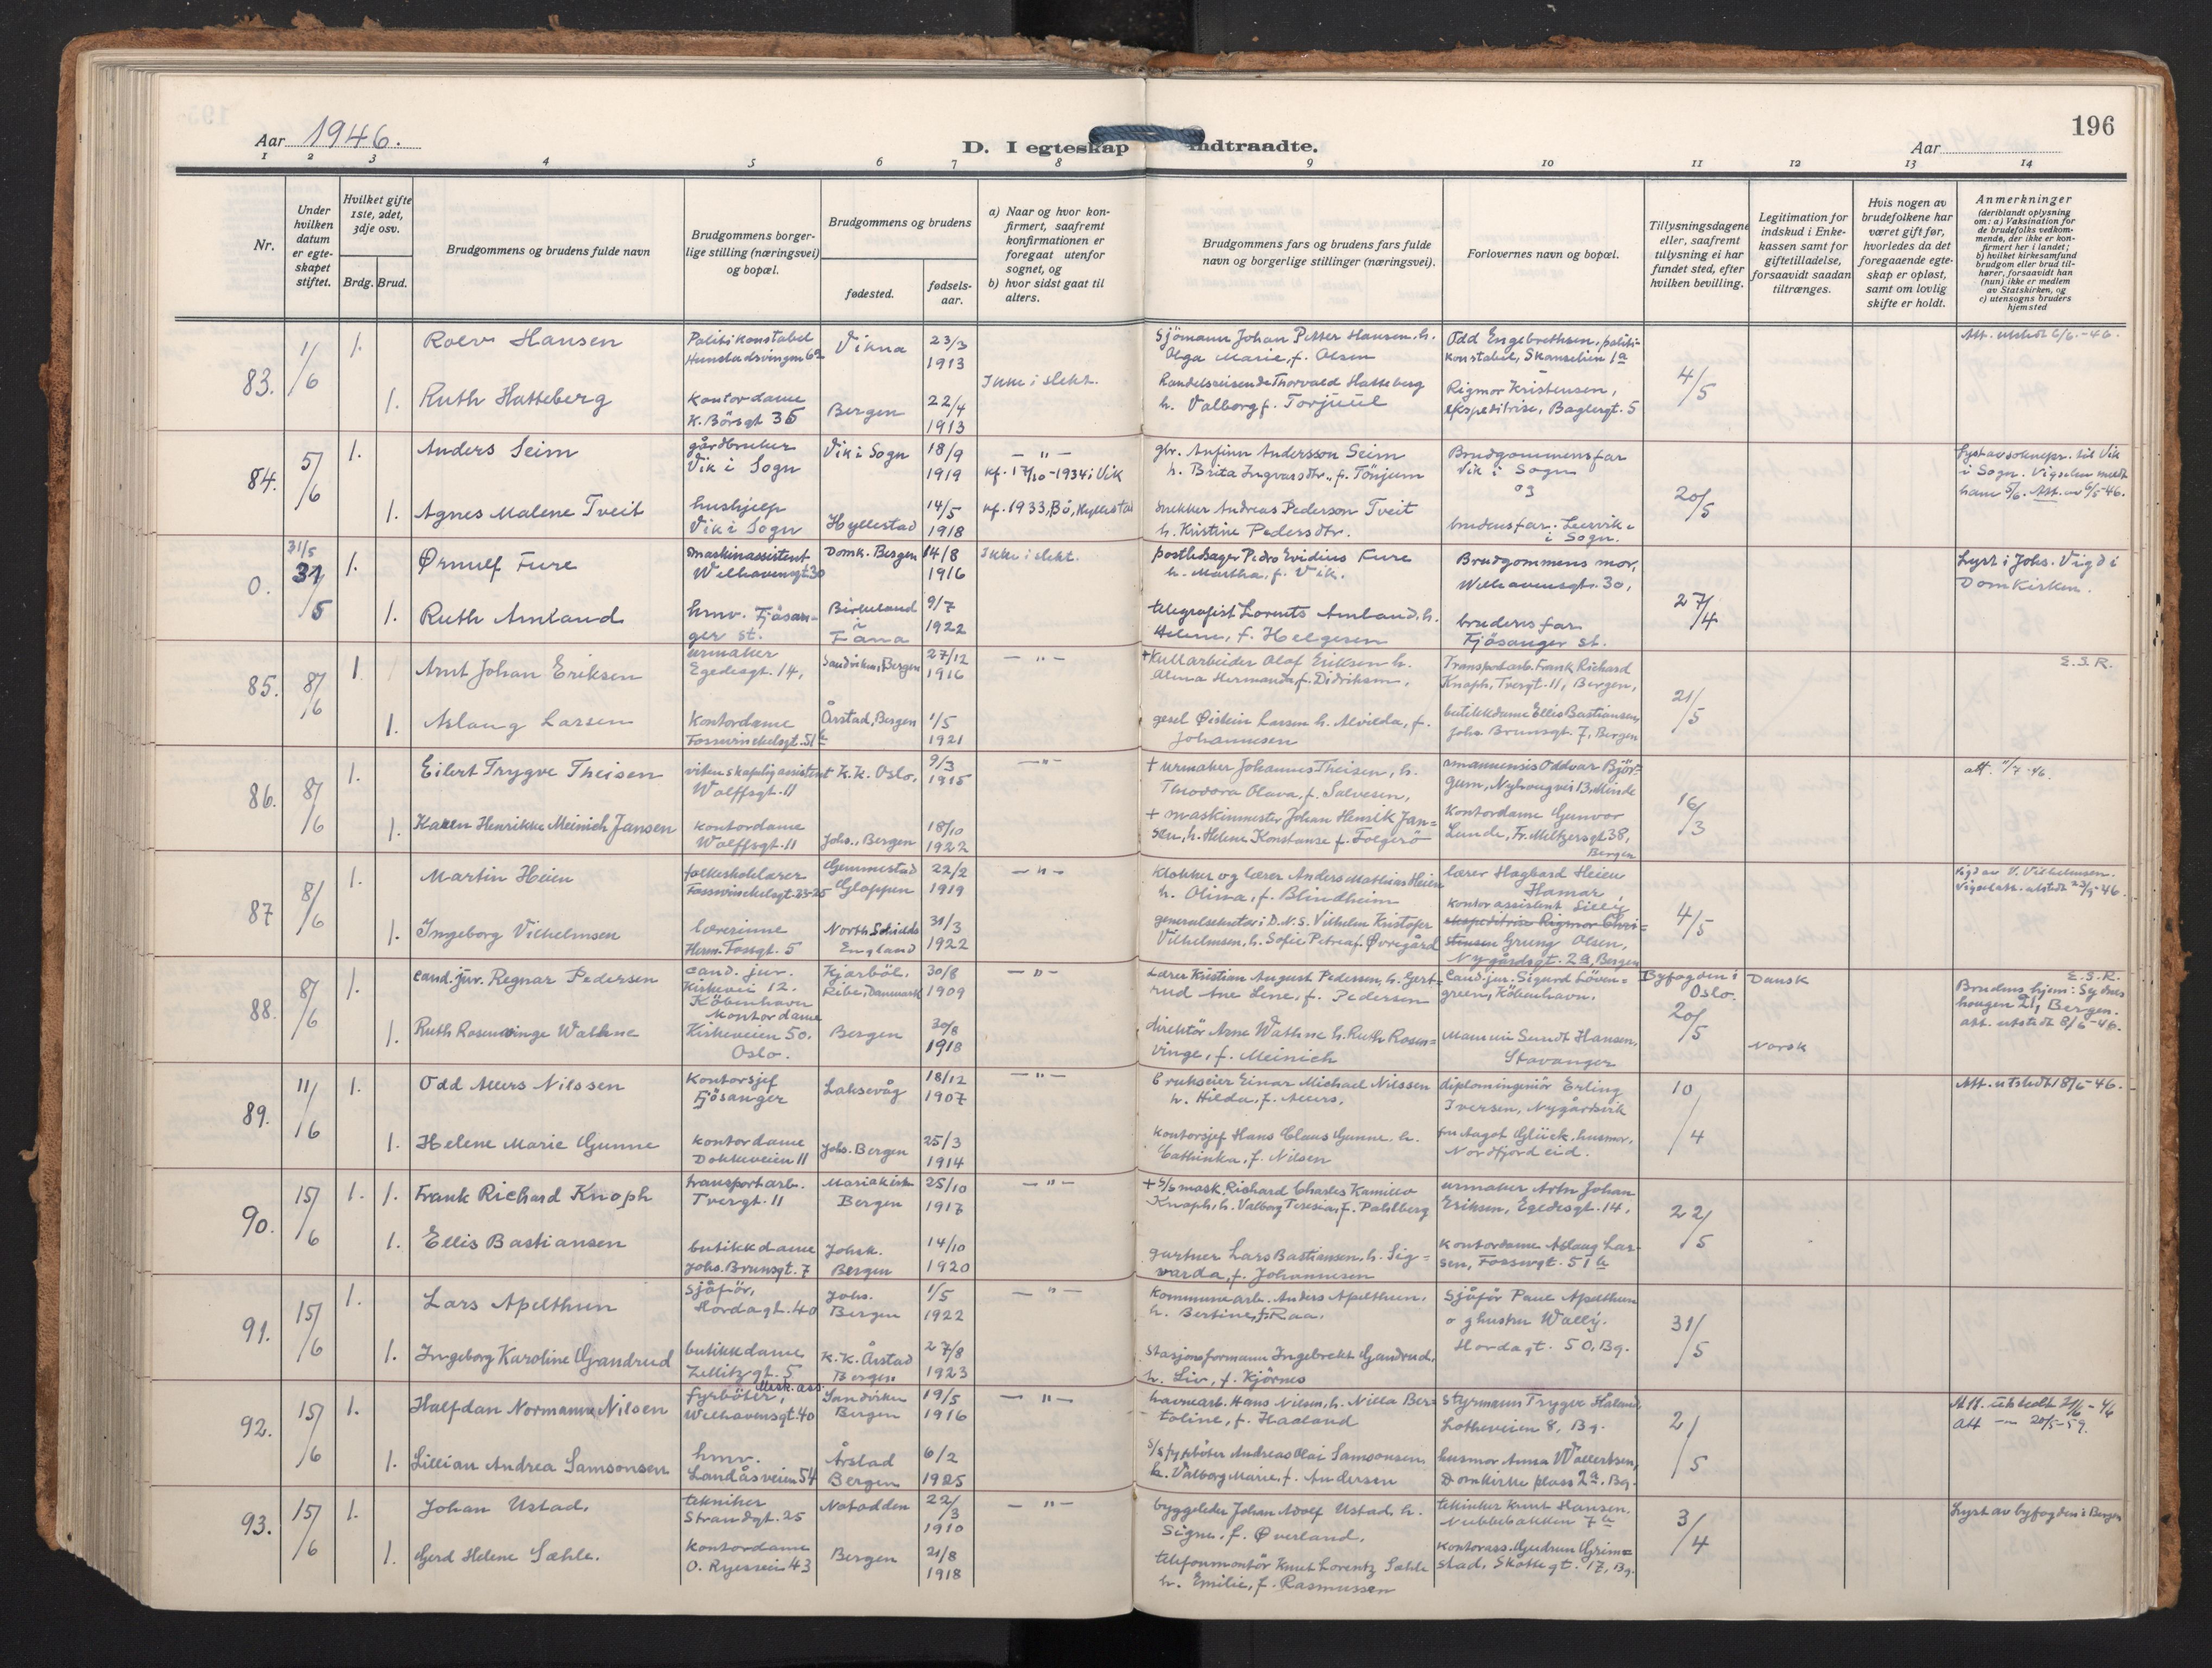 196
Aar 1946.
D. I egteskap indtraadte.
Aar
1 2 3 4 5 6 7 8 9 10 11 12 13 14
Nr.
Under hvilken datum er egteskapet stiftet.
Hvilket gifte 1ste, 2det, 3dje osv.
Brdg. Brud.
Brudgommens og brudens fulde navn
Brudgommens borgerlige stilling (næringsvei) og bopæl.
Brudgommens og brudens
fødested.
fødselsaar.
a) Naar og hvor konfirmert, saafremt konfirmationen er foregaat utenfor sognet, og
b) hvor sidst gaat til alters.
Brudgommens fars og brudens fars fulde navn og borgerlige stillinger (næringsvei).
Forlovernes navn og bopæl.
Tillysningsdagene eller, saafremt tillysning ei har fundet sted, efter hvilken bevilling.
Legitimation for indskud i Enkekassen samt for giftetilladelse, forsaavidt saadan tiltrænges.
Hvis nogen av brudefolkene har været gift før, hvorledes da det foregaaende egteskap er opløst, samt om lovlig skifte er holdt.
Anmerkninger
(deriblandt oplysning om: a) Vaksination for de brudefolks vedkommende, der ikke er konfirmert her i landet; b) hvilket kirkesamfund brudgom eller brud tilhører, forsaavidt han (hun) ikke er medlem av Statskirken, og c) utensogns bruders hjemsted
83. 1/6 1. Rolv Hansen Politikonstabel Vikna 23/3 1913 Sjömann Johan Petter Hansen, h. Olga Marie, f. Olsen Odd Engebrethsen, politikonstabel, Skanselien 1a 4/5 Att. utstedt 6/6-46.
Ikke i slekt.
1. Ruth Hatteberg kontordame K. Börsgt 35 Bergen 22/4 1913 Handelsreisende Thorvald Hatteberg h. Valborg f. Torjuul Rigmor Kristensen, ekspeditrise, Baglergt. 5
84. 5/6 1. Anders Seim gårdbruker Vik i Sogn Vik i Sogn 18/9 1919 — " — kf. 17/10-1934 i Vik gbr. Anfinn Andersson Seim h. Brita Ingvarsdtr., f. Tönjum Brudgommens far Vik i Sogn og 20/5 Lyst av soknepr. til Vik i Sogn. Vigselen meldt ham 5/6. Att. av 6/5-46.
1. Agnes Malene Tveit hushjelp Vik i Sogn Hyllestad 14/5 1918 kf. 1933, Bö, Hyllestad snekker Andreas Pederson Tveit h. Kristine Pedersdtr. brudens far. Leirvik i Sogn.
0. 31/5 31/5 1. Ørnulf Fure maskinassistent Welhavensgt 30 Domk. Bergen 14/8 1916 Ikke i slekt. postbetager Pedro Evidius Fure h. Martha, f. Vik. Brudgommens mor, Welhavensgt. 30, 27/4 Lyst i Johs. Vigd i Domkirken.
1. Ruth Amland hmv. Fjösanger st. Birkeland i Fana 9/7 1922 telegrafist Lorents Amland, h. Helene, f. Helgesen brudens far Fjösanger st.
85. 8/6 1 Arnt Johan Eriksen urmaker Egedesgt. 14, Sandviken, Bergen 27/12 1916 — " — + Kullarbeider Olaf Eriksen h. Alma Hermanda, f. Didriksen. Transportarb. Frank Richard Knoph, Tvergt. 11, Bergen, 21/5 E.S.R.
1. Aslaug Larsen Kontordame Fosswinckelsgt. 51 b Årstad, Bergen 1/5 1921 gesel Øistein Larsen h. Alvilda, f. Johannesen butikkdame Ellis Bastiansen, Johs. Brunsgt. 7, Bergen
86. 8/6 1. Eilert Trygve Theisen vitenskapelig assistent Wolffsgt. 11 K.K. Oslo, 9/3 1915 — " — + urmaker Johannes Theisen, h. Theodora Olava, f. Salvesen, amanuensis Oddvar Björgum, Nyhaugvei 13, Minde 16/3 att. 11/7-46.
1. Karen Henrikke Meinich Jansen kontordame Wolffsgt. 11 Johs., Bergen 18/10 1922 + maskinmester Johan Henrik Jansen, h. Helene Konstanse f. Folgerö Kontordame Gunvor Lunde, Fr. Meltzersgt 38, Bergen
87 8/6 1. Martin Heien folkeskolelærer Fosswinckelsgt. 23-25 Gimmestad Gloppen 22/2 1919 — " — Klokker og lærer Anders Mathias Heien h. Olina, f. Blindheim lærer Hagbard Heien Hamar 4/5 Vigd av V. Vilhelmsen. Vigselatt. utstedt 23/9-46.
1. Ingeborg Vilhelmsen lærerinne Herm. Fossgt. 5 North Schields England 31/3 1922 generalsekretær i D.N.S. Vilhelm Kristofer Vilhelmsen, h. Sofie Petrea f. Øvregård kontorassistent Lilly ekspeditrise Rigmor Christensen Grung Olsen, Nygårdsgt. 2a, Bergen
88. 8/6 1. cand. jur. Regnar Pedersen cand. jur. Kirkevei 12. Köbenhavn Kjærböl. Ribe, Danmark 30/8 1909 — " — Lærer Kristian August Pedersen, h. Gertrud Ane Line, f. Pedersen Cand. jur. Sigurd Lövengreen, Köbenhavn. Byfogden i Oslo. 20/5 Dansk E.S.R. Brudens hjem: Sydneshaugen 21, Bergen. att. utstedt 8/6-46.
1. Ruth Rosenvinge Wathne Kontordame Kirkeveien 50. Oslo. Bergen 30/8 1918 direktör Arne Wathne h. Ruth Rosenvinge, f. Meinich Mammi Sundt Hansen, Stavanger Norsk
89. 11/6 1. Odd Allers Nilssen Kontorsjef Fjösanger Laksevåg 18/12 1907 — " — Brukseier Einar Michael Nilssen h. Hilda, f. Allers, diplomingeniör Erling Iversen, Nygårdsvik 10/4 Att. utstedt 18/6-46.
1. Helene Marie Gunne Kontordame Dokkeveien 11 Johs. Bergen 25/3 1914 Kontorsjef Hans Claus Gunne. h. Cathinka, f. Nilsen fru Aagot Glück, husmor, Nordfjordeid.
90. 15/6 1. 1. Frank Richard Knoph transportarb. Tvergt. 11 Mariakirk Bergen 25/10 1917 — " — + S/S mask. Richard Charles Kamillo Knoph, h. Valborg Teresia, f. Pahlberg urmaker Artn Johan Eriksen, Egedesgt. 14, 22/5
1. Ellis Bastiansen butikkdame Johs. Brunsgt. 7 Johsk. Bergen 14/10 1920 gartner Lars Bastiansen, h. Sigvarda, f. Johannesen Kontordame Aslaug Larsen, Fosswgt. 51 b
91. 15/6 1. Lars Apelthun sjåför, Hordagt. 40 Johs. Bergen 1/5 1922 — " — Kommunearb. Anders Apelthun, h. Bertine, f. Raa. Sjåför Paul Apelthun og hustru Wally. Hordagt. 50, Bg. 31/5
1. Ingeborg Karoline Gandrud butikkdame Zellitzgt. 5 K.K. Årstad Bergen 27/8 1923 Stasjonsformann Ingebrekt Gandrud, h. Liv, f. Kjörnes
92. 15/6 1. Halfdan Normann Nilsen fyrböter, Mask. ass. Welhavensgt. 40 Sandviken Bergen 19/5 1916 — " — havnearb. Hans Nilsen, h. Nilla Bertoline, f. Haaland Styrmann Trygve Håland Lotheveien 8, Bg. 2/5 Att. utstedt 21/6-46 Att — " — 20/5-59.
1. Lillian Andrea Samsonsen hmv. Landåsveien 54 Årstad Bergen 6/2 1925 S/S fyrböter Andreas Olai Samsonsen, h. Valborg Marie, f. Andersen husmor Anna Wallertsen, Domkirkeplass 2a. Bg.
93. 15/6 1. Johan Ustad. tekniker Strandgt. 25 Notodden 22/3 1910 — " — byggeleder Johan Adolf Ustad, h. Signe, f. Øverland. tekniker Knut Hansen. Nubbebakken 7a 3/4 Lyst av byfogden i Bergen
1. Gerd Helene Sæhle. Kontordame O. Ryesvei 43 Bergen 21/8 1918 telefonmontör Knut Lorentz Sæhle h. Emilie, f. Rasmussen Kontorass. Gudrun Grimstad, Skottegt. 17, Bg.